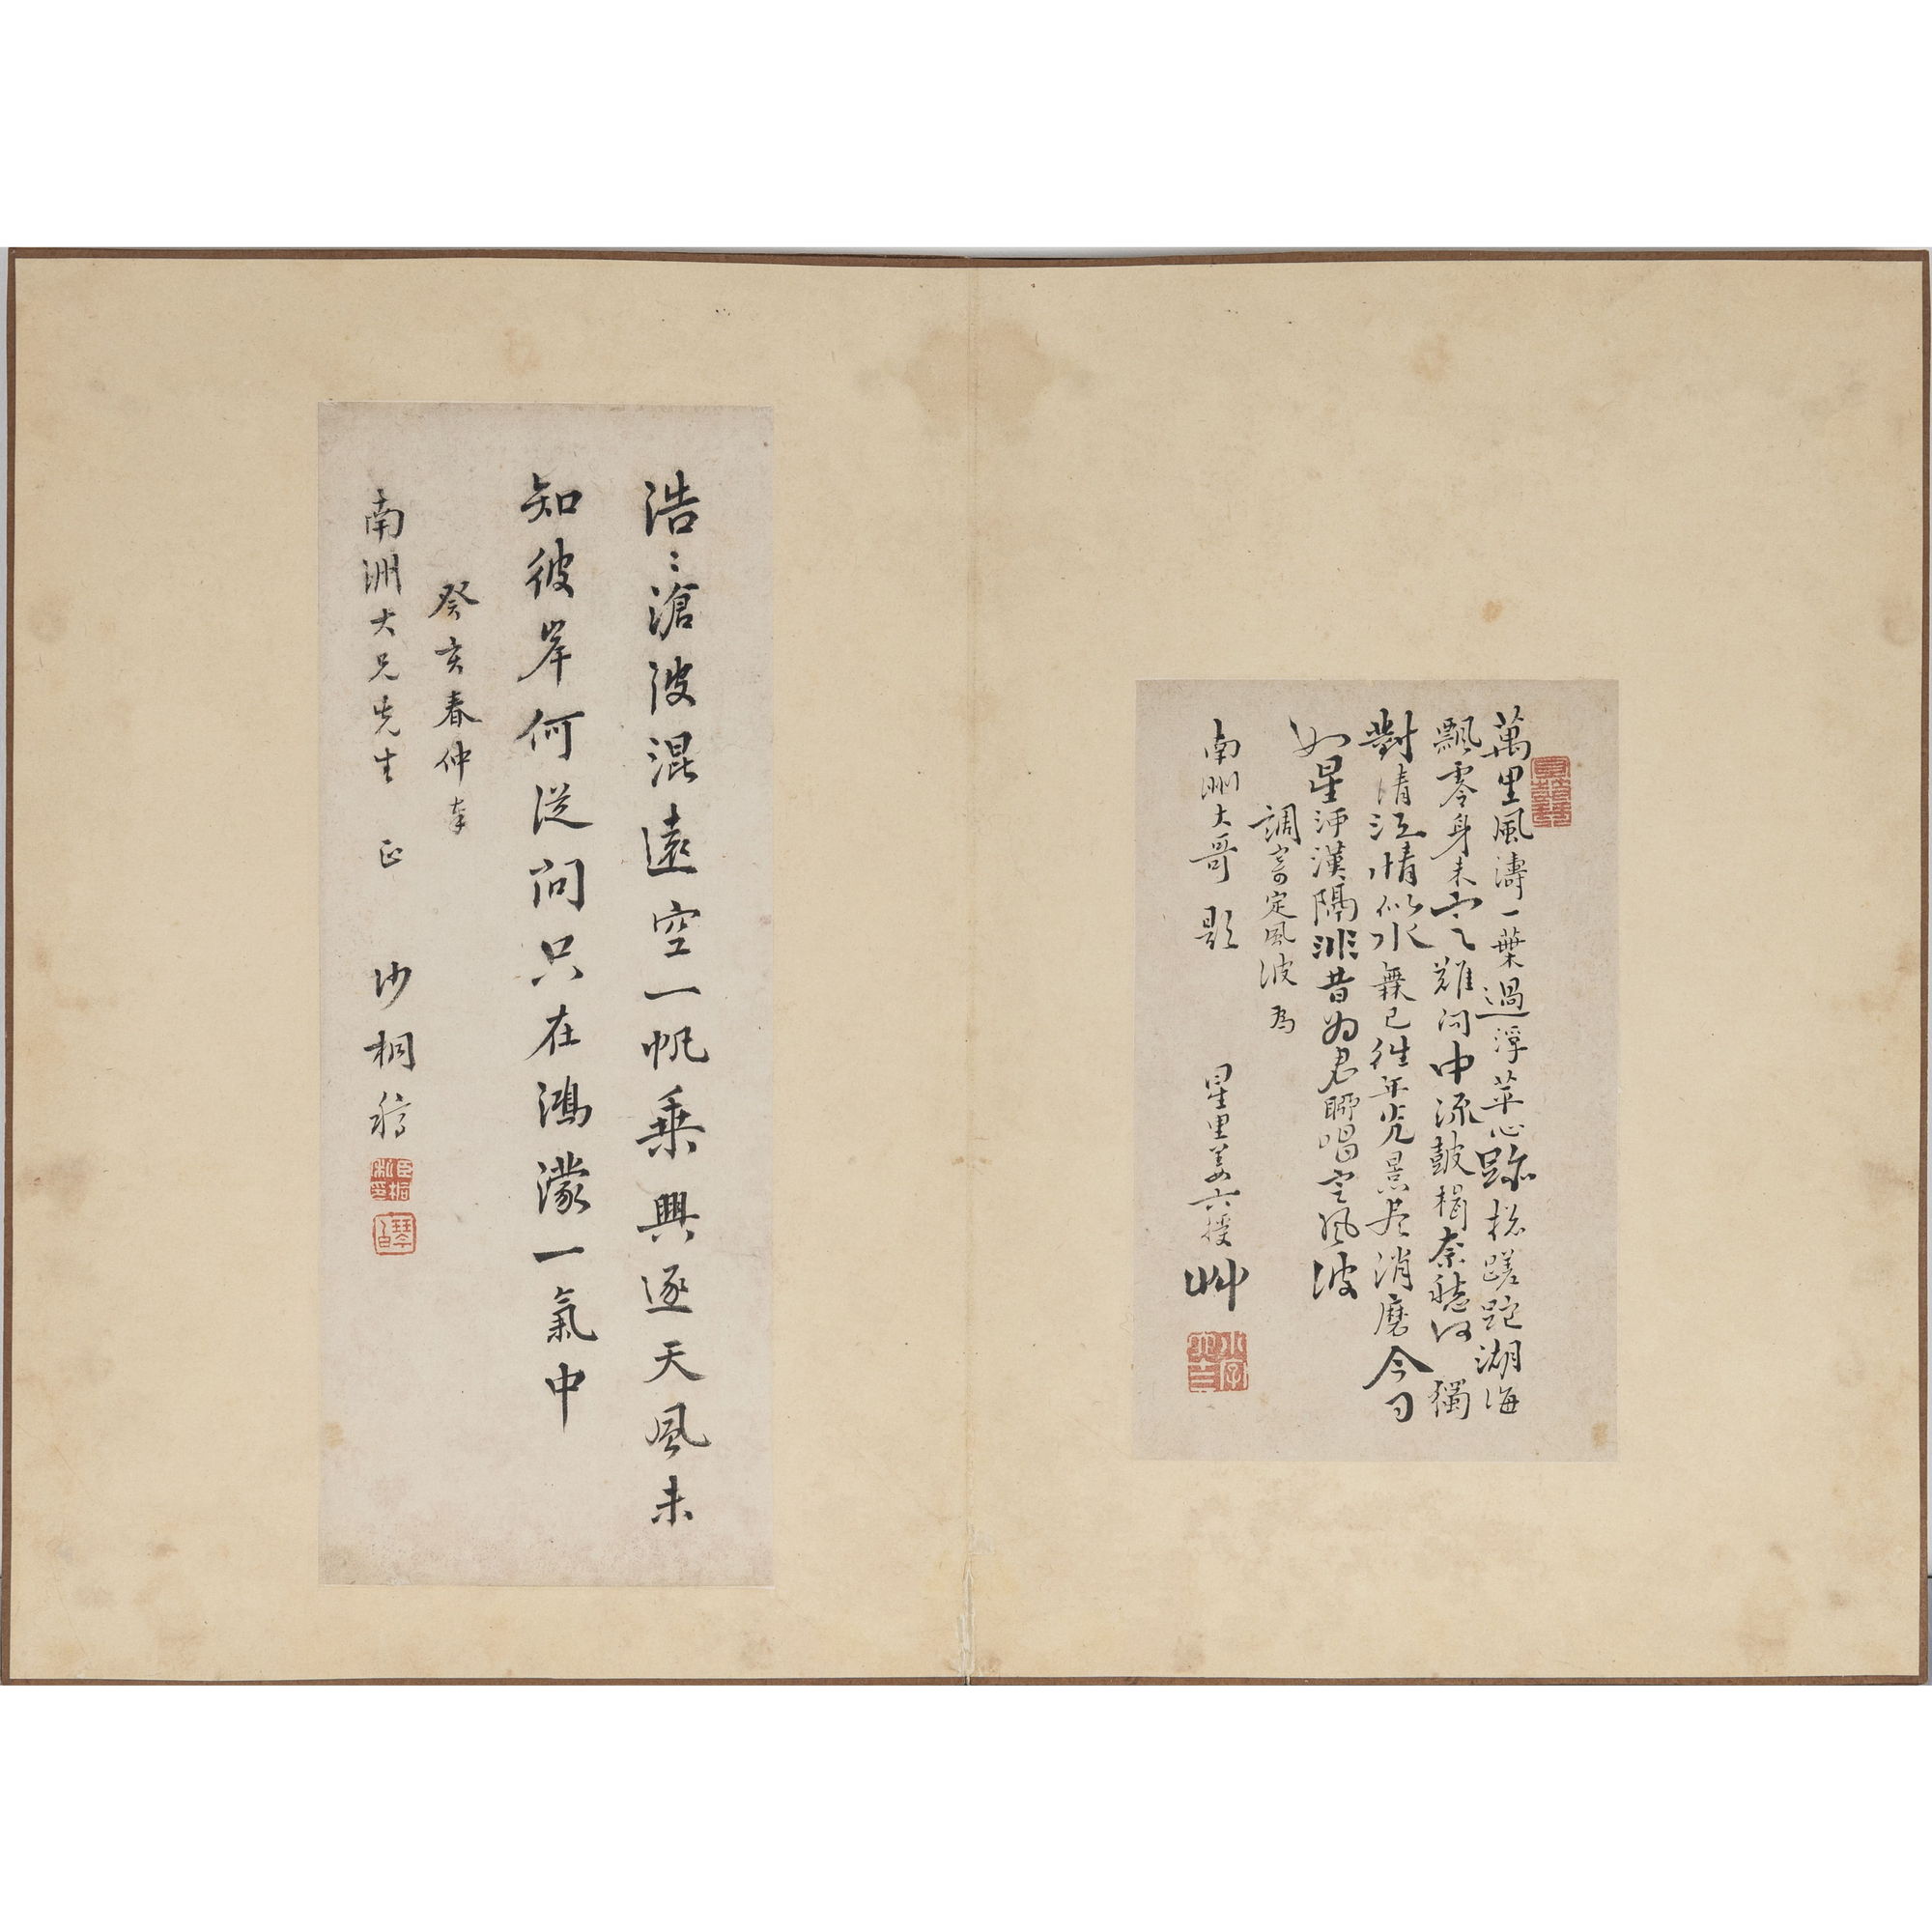 萬里風濤一葉過浮苹心跡撚蹉跎湖海
飄零身未定難問中流鼓楫奈愁何獨
對清江情似水無已往年光景尽消磨今日
如星河漢隔非昔为君聊唱定风波
調寄定風波為
南洲大哥題
星里姜六授艸
浩〻滄波混遠空一帆乗興逐天風未
知彼岸何從问只在鴻濛一氣中
癸亥春仲奉
南洲大兄先生 正
沙桐稿